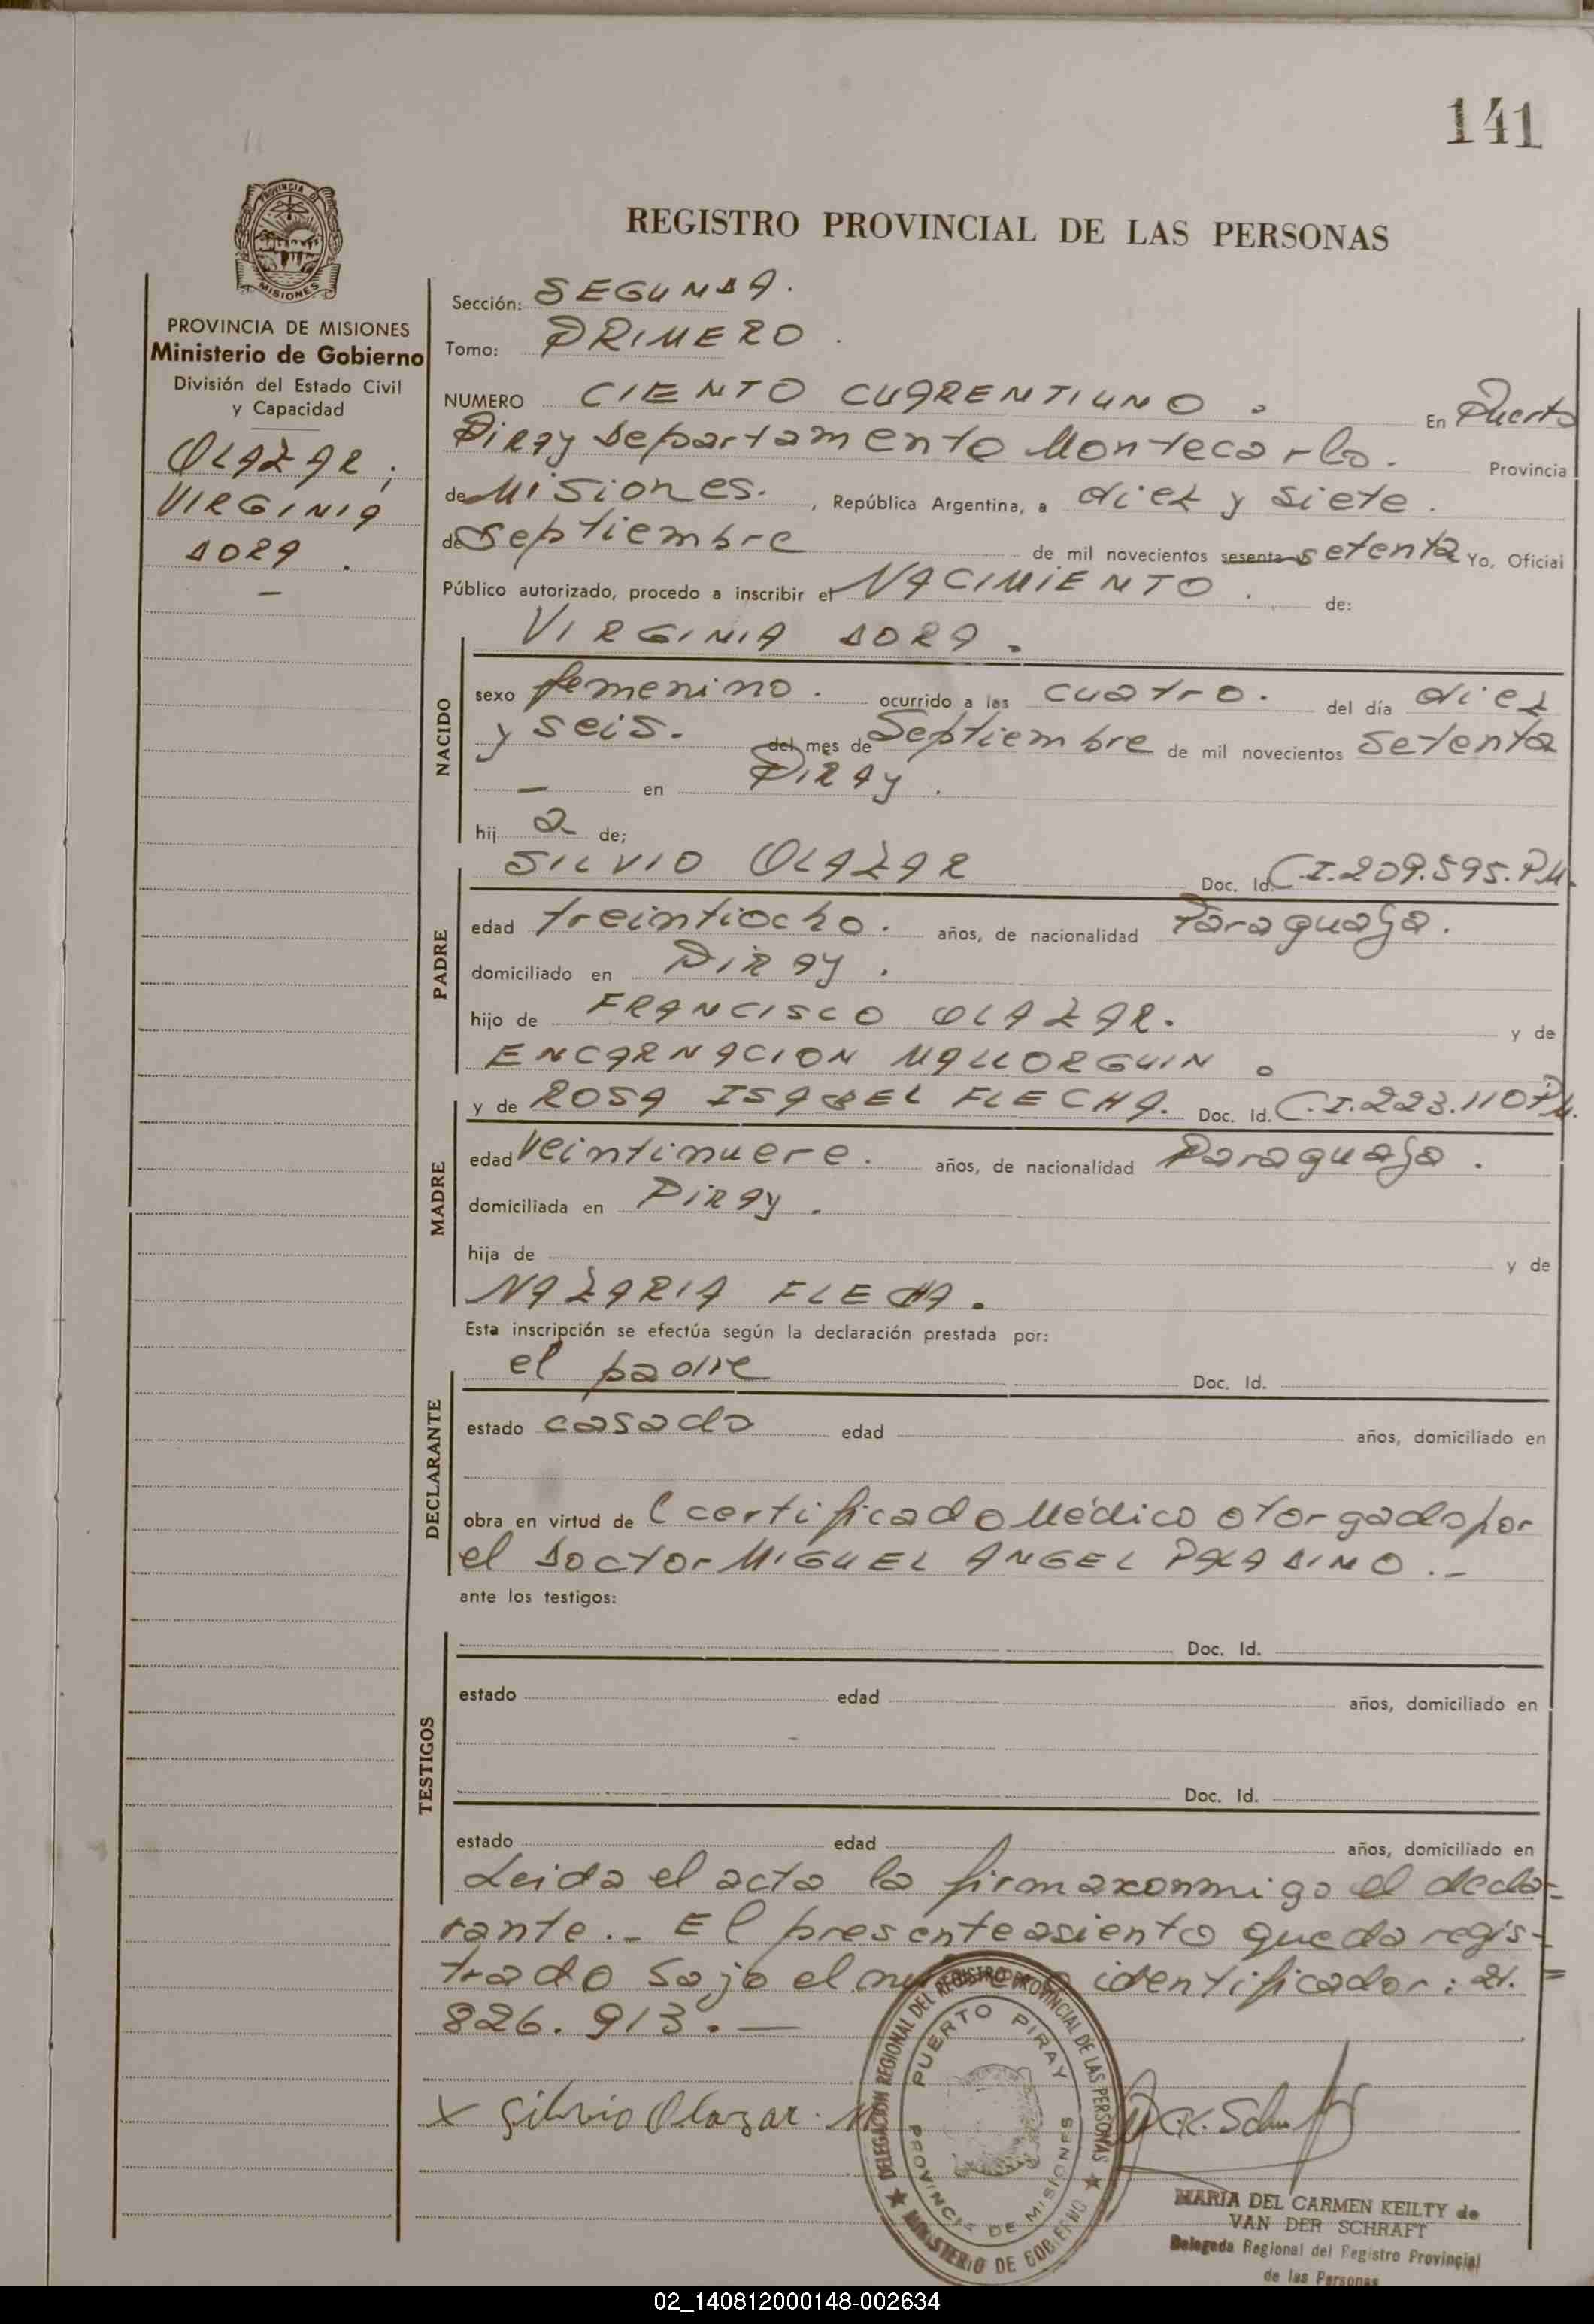 141
PROVINCIA
MISIONES
REGISTRO PROVINCIAL DE LAS PERSONAS
PROVINCIA DE MISIONES
Ministerio de Gobierno
División del Estado Civil
y Capacidad
OLAZAR,
VIRGINIA
DORA.
Sección: SEGUNDA.
Tomo: PRIMERO.
NUMERO CIENTO CUARENTIUNO. En Puerto
Piray Departamento Montecarlo. Provincia
de Misiones., República Argentina, a diez y siete.
de Septiembre de mil novecientos sesenta setenta Yo, Oficial
Público autorizado, procedo a inscribir el NACIMIENTO. de:
VIRGINIA DORA.
NACIDO
sexo femenino. ocurrido a las cuatro. del día diez
y seis. del mes de Septiembre de mil novecientos setenta
— en Piray.
hij a de;
SILVIO OLAZAR Doc. Id. C.I.209.595.PM.
PADRE
edad treintiocho. años, de nacionalidad Paraguaya.
domiciliado en Piray.
hijo de FRANCISCO OLAZAR. y de
ENCARNACION MALLORGUIN.
y de ROSA ISABEL FLECHA. Doc. Id. C.I.223.110PM.
MADRE
edad veintinueve. años, de nacionalidad Paraguaya.
domiciliada en Piray.
hija de y de
NAZARIA FLECHA.
Esta inscripción se efectúa según la declaración prestada por:
el padre Doc. Id.
DECLARANTE
estado casado edad años, domiciliado en
obra en virtud de certificado Médico otorgado por
el Doctor MIGUEL ANGEL PALADINO.-
ante los testigos:
Doc. Id.
TESTIGOS
estado edad años, domiciliado en
Doc. Id.
estado edad años, domiciliado en
Leida el acta la firma conmigo el decla=
rante.- El presente asiento queda regis-
trado bajo el número identificador: 21.=
826.913.—
X Silvio Olazar.
DELEGACION REGIONAL DEL REGISTRO PROVINCIAL DE LAS PERSONAS
MINISTERIO DE GOBIERNO
PUERTO PIRAY
PROVINCIA DE MISIONES
MARIA DEL CARMEN KEILTY de
VAN DER SCHRAFT
Delegada Regional del Registro Provincial
de las Personas
02_140812000148-002634